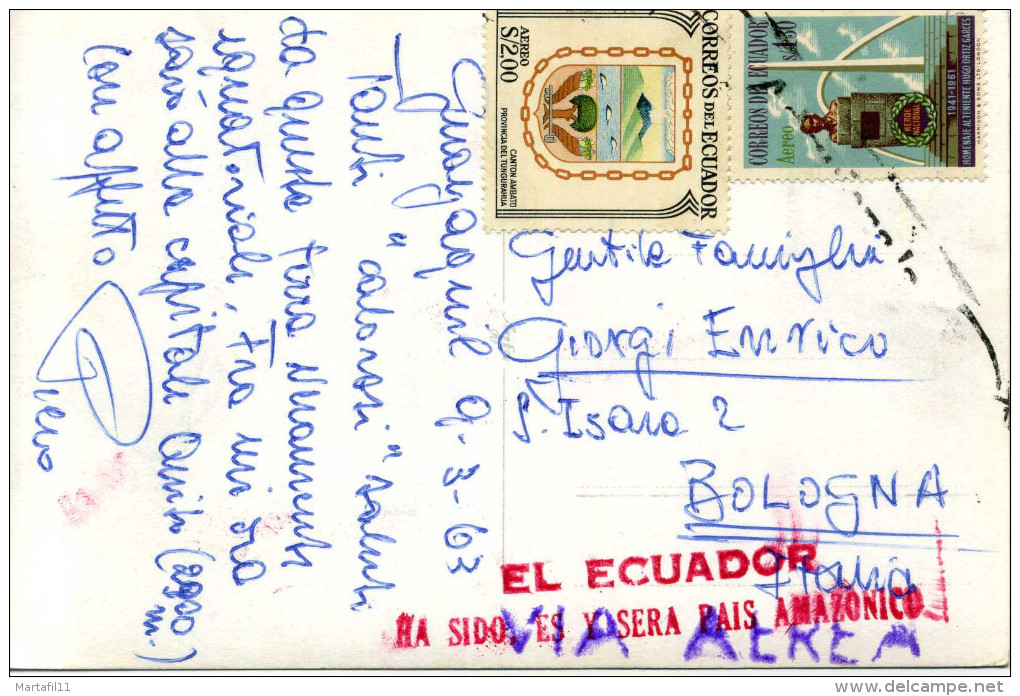 Guayaquil 9-3-63
Tanti "calorosi" saluti
da questa terra veramente
equatoriale. Fra un'ora
sarò alla capitale Quito (2900
m.)
Con affetto
Piero
CORREOS DEL ECUADOR
AEREO
S/2,00
CANTON AMBATO
PROVINCIA DEL TUNGURAHUA
CORREOS DEL ECUADOR
Aereo
S/1.30
HEROE
NACIONAL
1941-1961
HOMENAJE AL TENIENTE HUGO ORTIZ GARCES
HARRISON & SONS LTD LONDON
Gentile Famiglia
Giorgi Enrico
S. Isaia 2
BOLOGNA
Italia
EL ECUADOR
HA SIDO, ES Y SERA PAIS AMAZONICO
VIA AEREA
Martafil11
www.delcampe.net